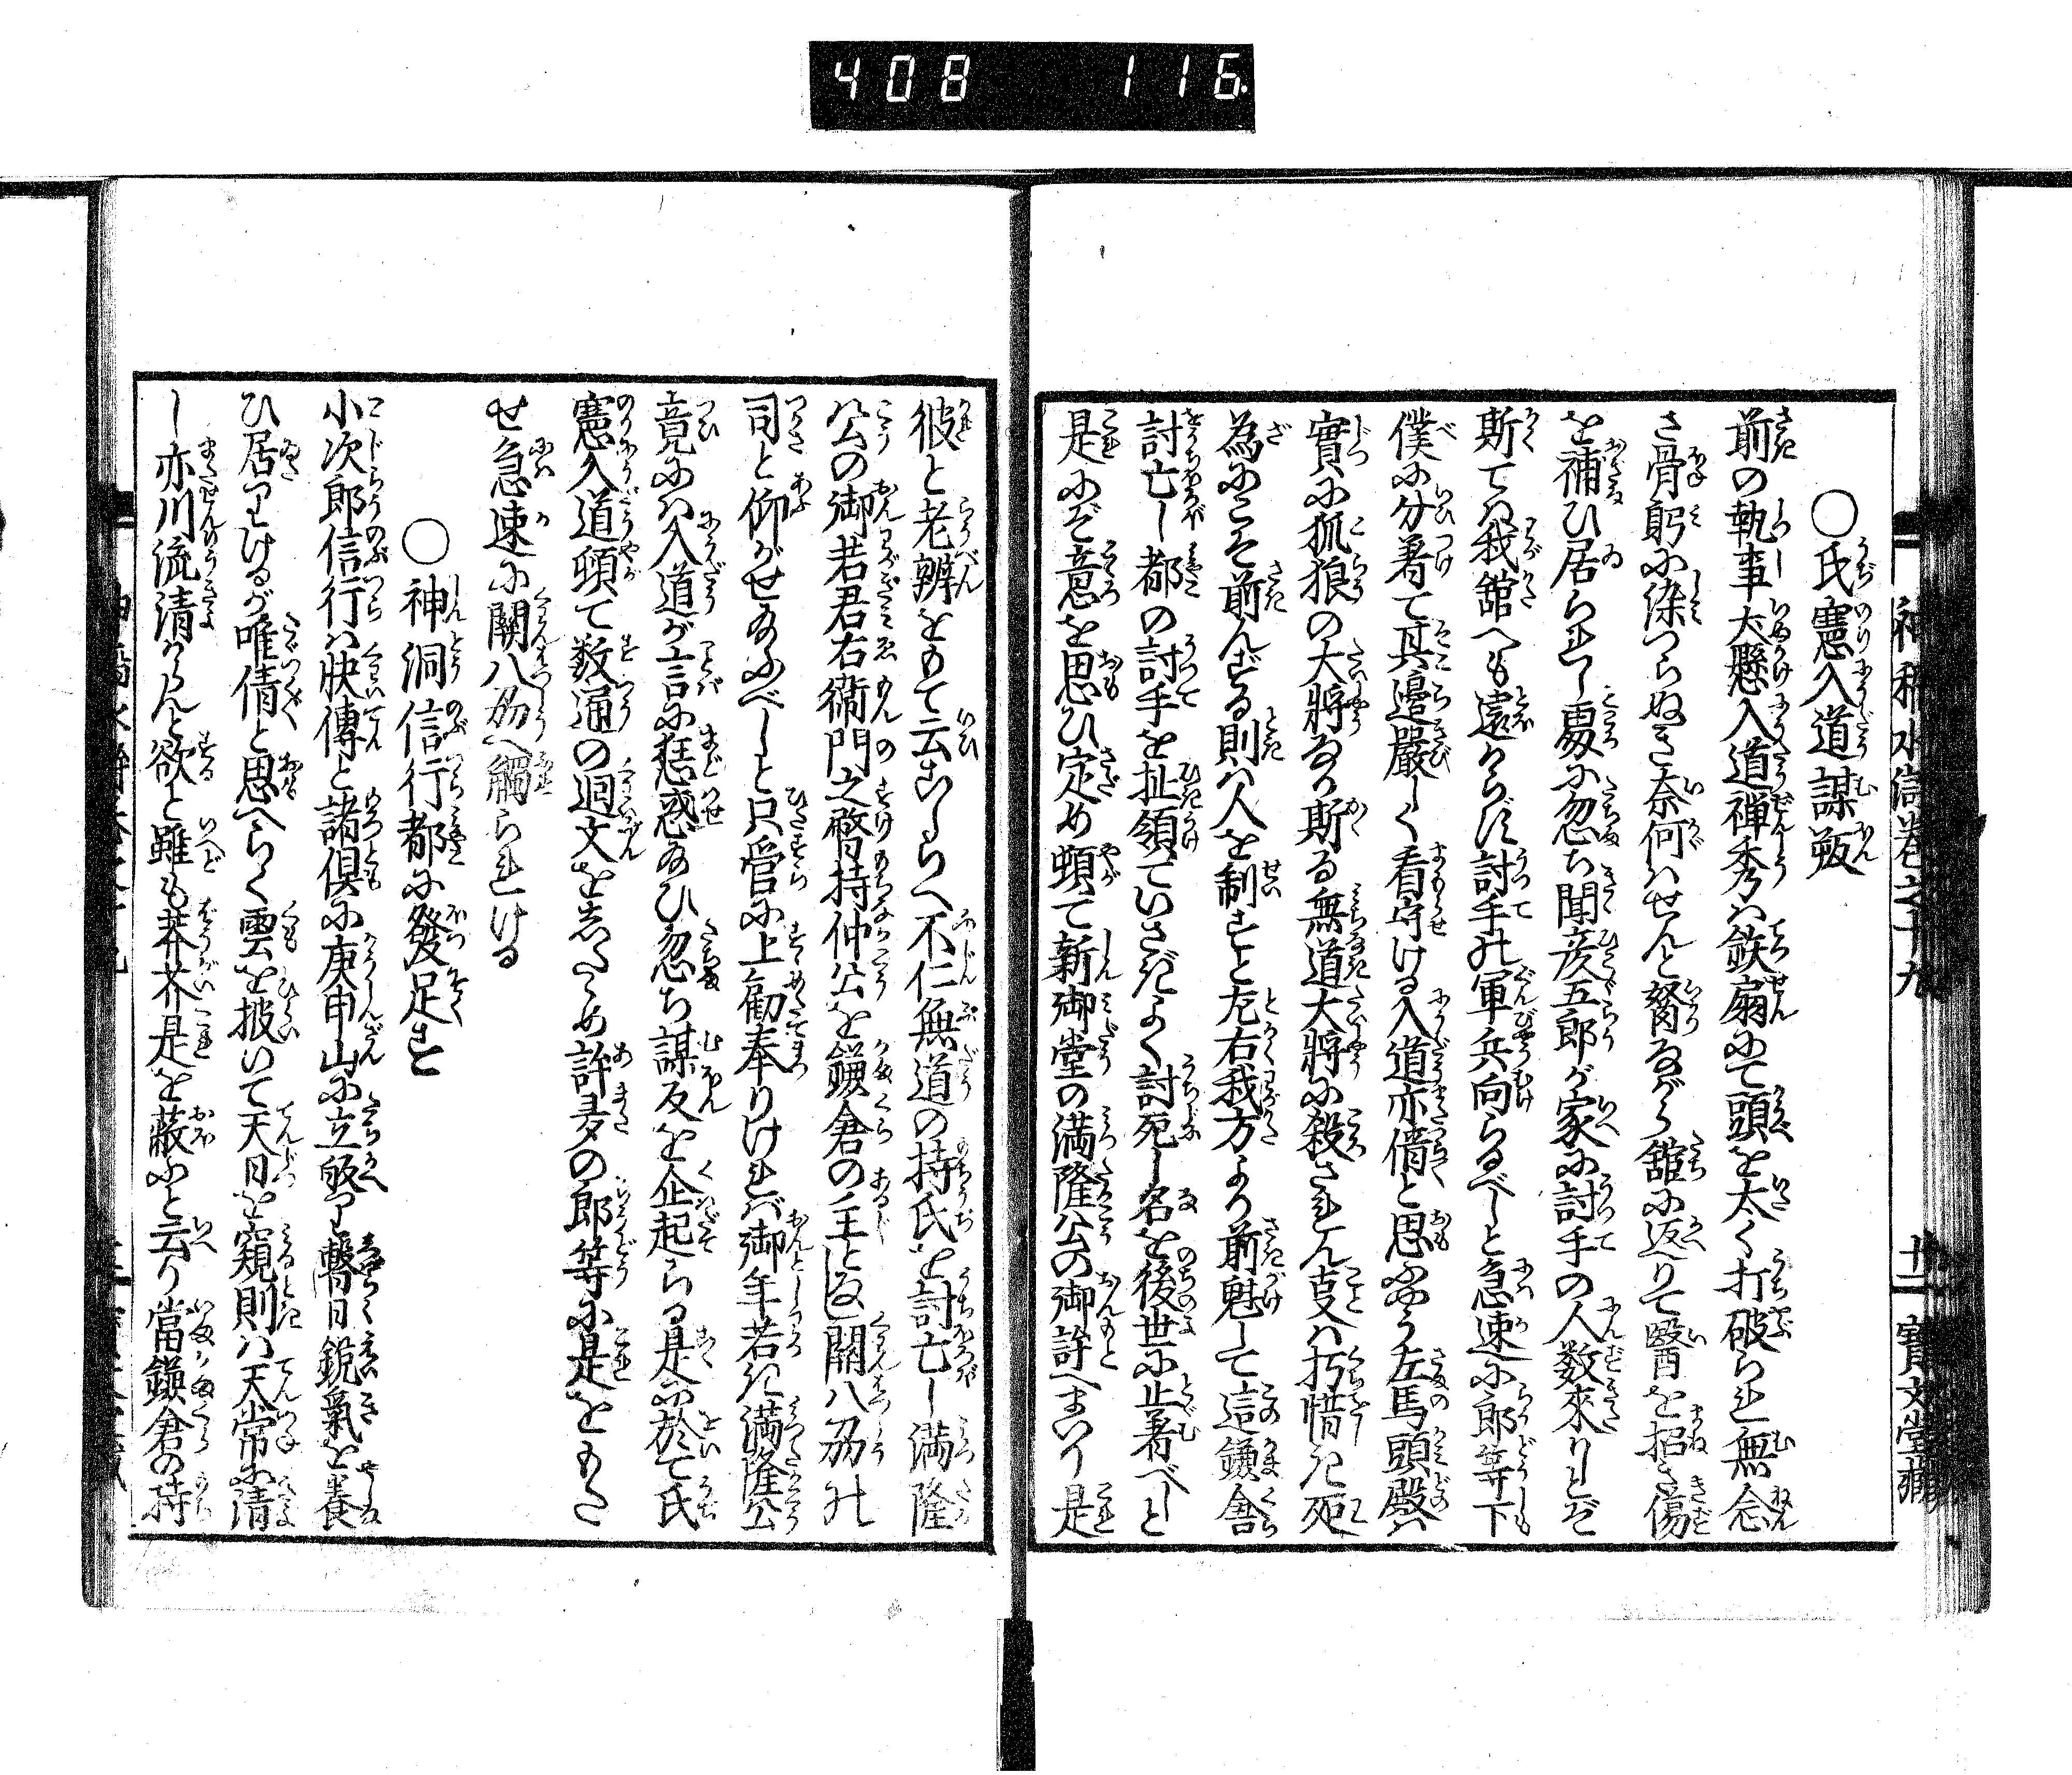 408 116
○氏憲入道謀叛
前の執事犬懸入道禅秀ハ鉄扇にて頭を太く打破られ無念
さ骨躬に染つらぬき奈何ハせんと驚ながら舘に返りて醫を招き傷
を補ひ居られし処に忽ち聞彦五郎が家に討手の人数來りしぞ
斯てハ我舘へも遠からず討手の軍兵向らるべしと急速に郎等下
僕に分著て其邉嚴しく看守ける入道亦倩と思ふやう左馬頭殿ハ
實に狐狼の大將なり斯る無道大將に殺されん㕝ハ朽惜き死
為にこそ前んずる則ハ人を制すと左右我方より前魁して這鎌倉
討亡し都の討手を扯領ていさぎよく討死し名を後世に止著べしと
是にぞ意を思ひ定め頓て新御堂の満隆公の御許へまいり是
彼と老辨をもて云こしらへ不仁無道の持氏を討亡し満隆
公の御若君右衞門之督持仲公を鎌倉の主となし關八刕の
司と仰がせ給ふべしと只管に上勧奉りけれバ御年若き満隆公
竟にハ入道が言に惑惑給ひ忽ち謀反を企起らる是に於て氏
憲入道頓て数通の廻文を志たゝめ許多の郎等に是をもた
せ急速に關八刕へ觸られける
○神洞信行都に發足す
小次郎信行ハ快傳と諸倶に庚申山に立皈り暫日鋭氣を養
ひ居りけるが唯倩と思へらく雲を披いて天日を窺則ハ天常に清
し亦川流清からんと欲と雖も莽芥是を蔽ふと云り當鎌倉の持
神稲水滸巻之十九
十二
寳文堂藏